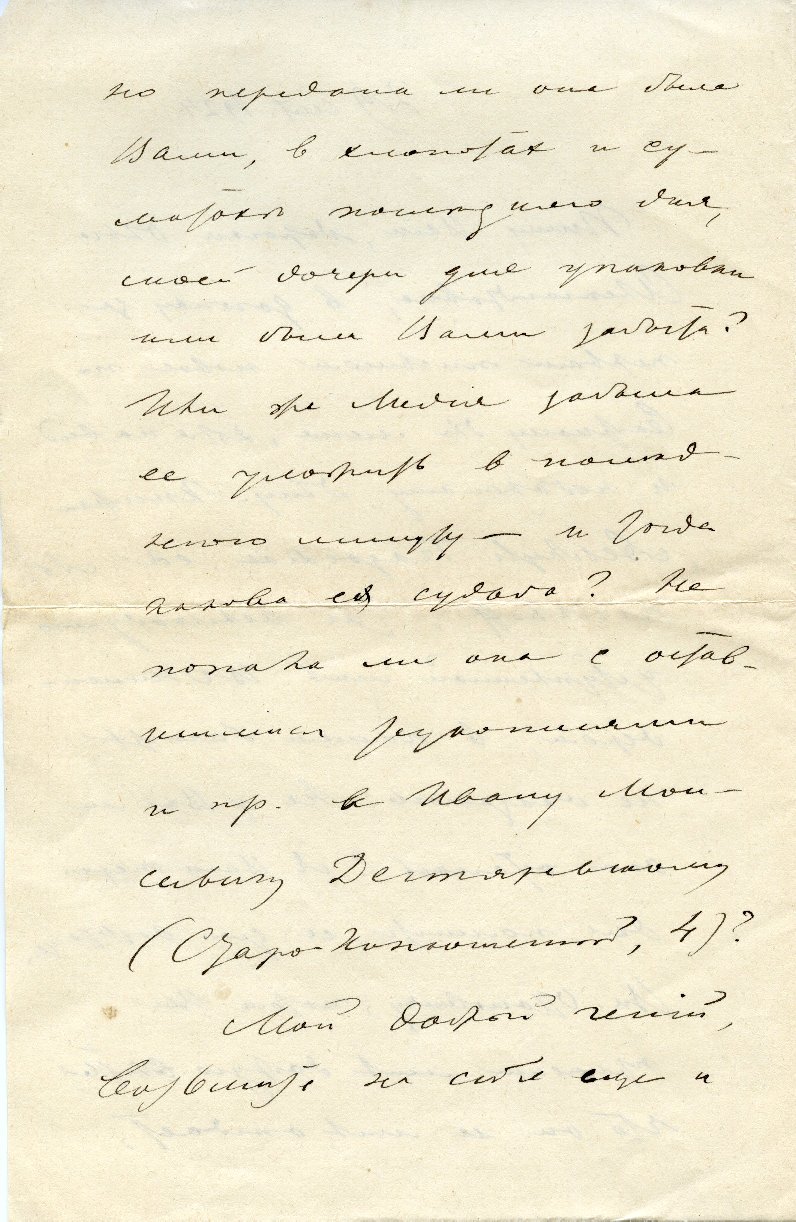 но передана ли она была
Вами, в хлопотах и су-
матохе последнего дня,
моей дочери для упаковки
или была Вами забыта?
Или же Лидия забыла
ее уложить в послед-
нюю минуту — и тогда
какова ея судьба? Не
попала ли она с остав-
шимися рукописями
и пр. к Ивану Мои-
сеевичу Дегтяревскому
(Старо-Конюшенный, 4)?
Мой добрый гений,
Возьмите на себя еще и